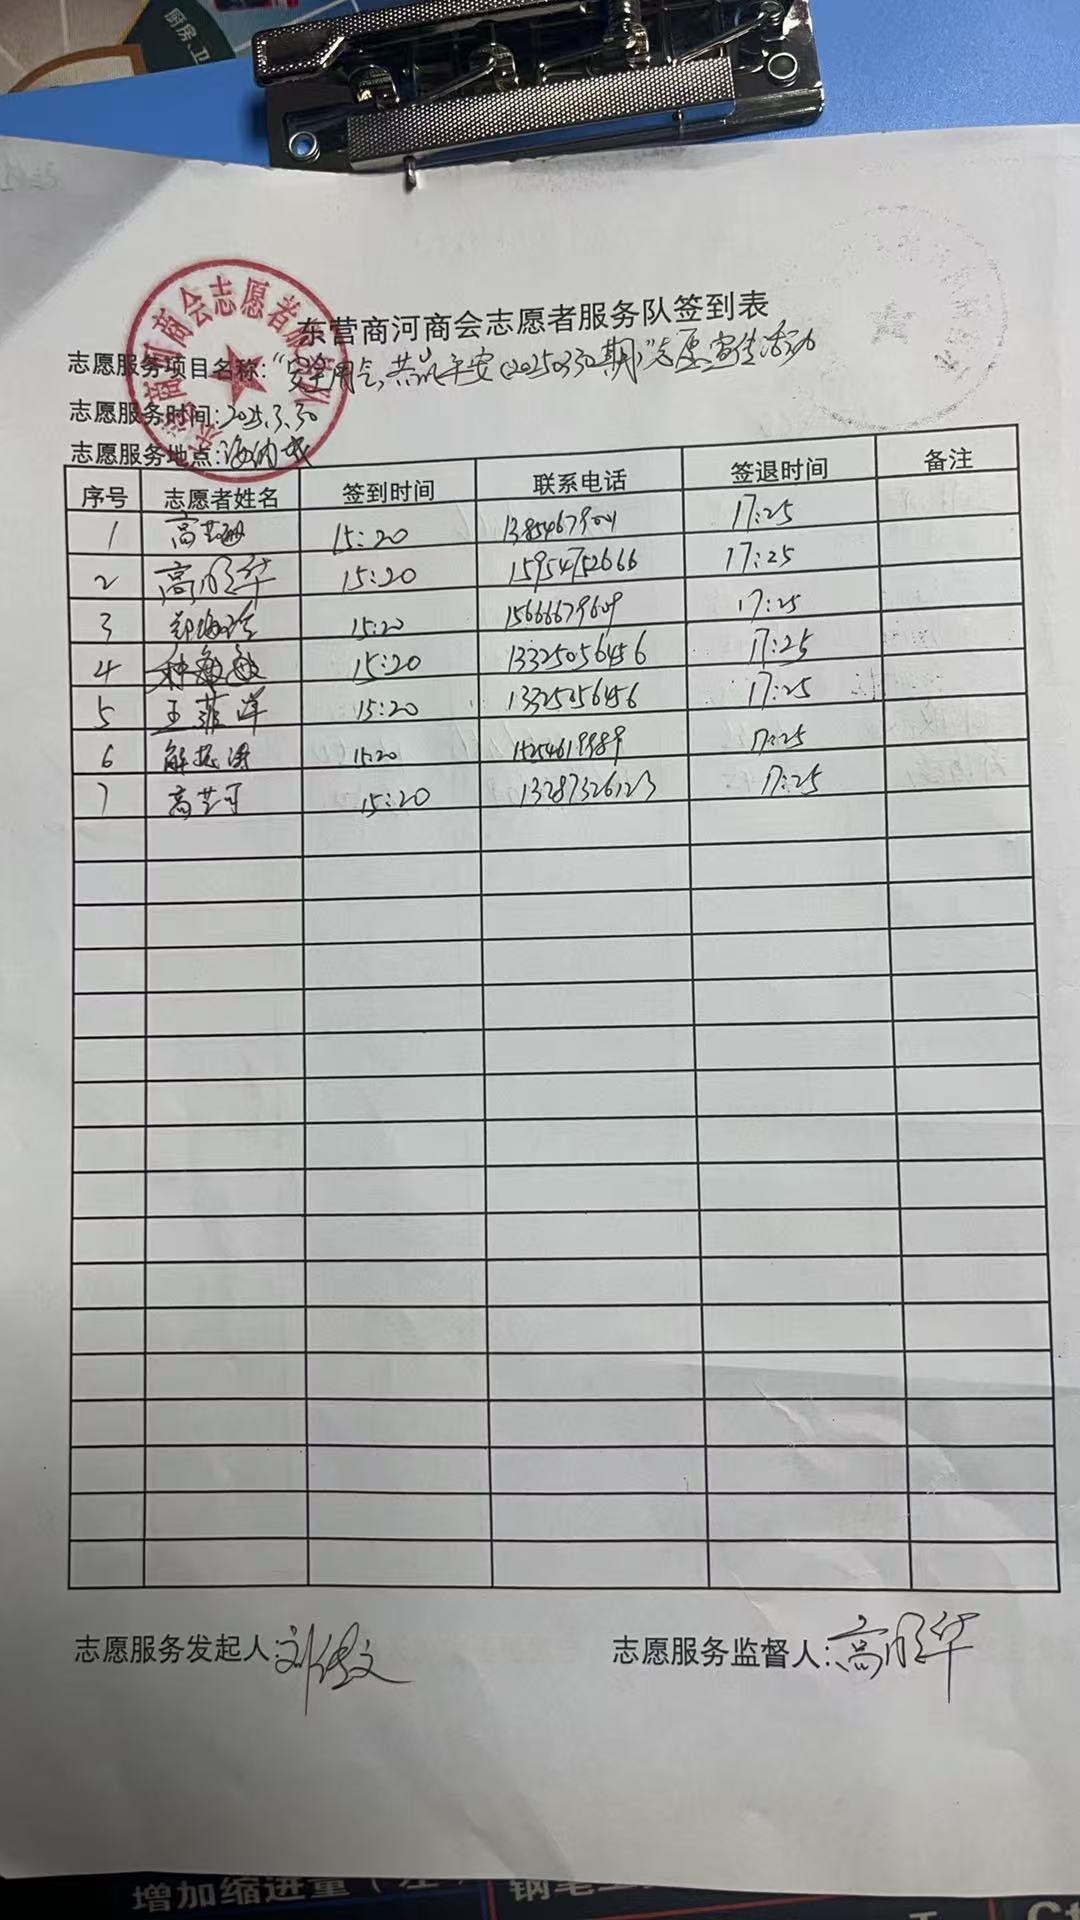 厨房、卫
东营商河商会志愿者服务队签到表
志愿服务项目名称:“安全用气,共筑平安(20250330期)”志愿宣传活动
志愿服务时间:2025.3.30
志愿服务地点:海纳城
序号 志愿者姓名 签到时间 联系电话 签退时间 备注
1 高 15:20 17:25
2 高明华 15:20 15954752666 17:25
3 15:20 17:25
4 种敏敏 15:20 13325056456 17:25
5 王菲洋 15:20 13325056456 17:25
6 解 15:20 17:25
7 高艺可 15:20 13287326123 17:25
志愿服务发起人:刘 文 志愿服务监督人:高明华
增加缩进量(左 钢笔工
Ct